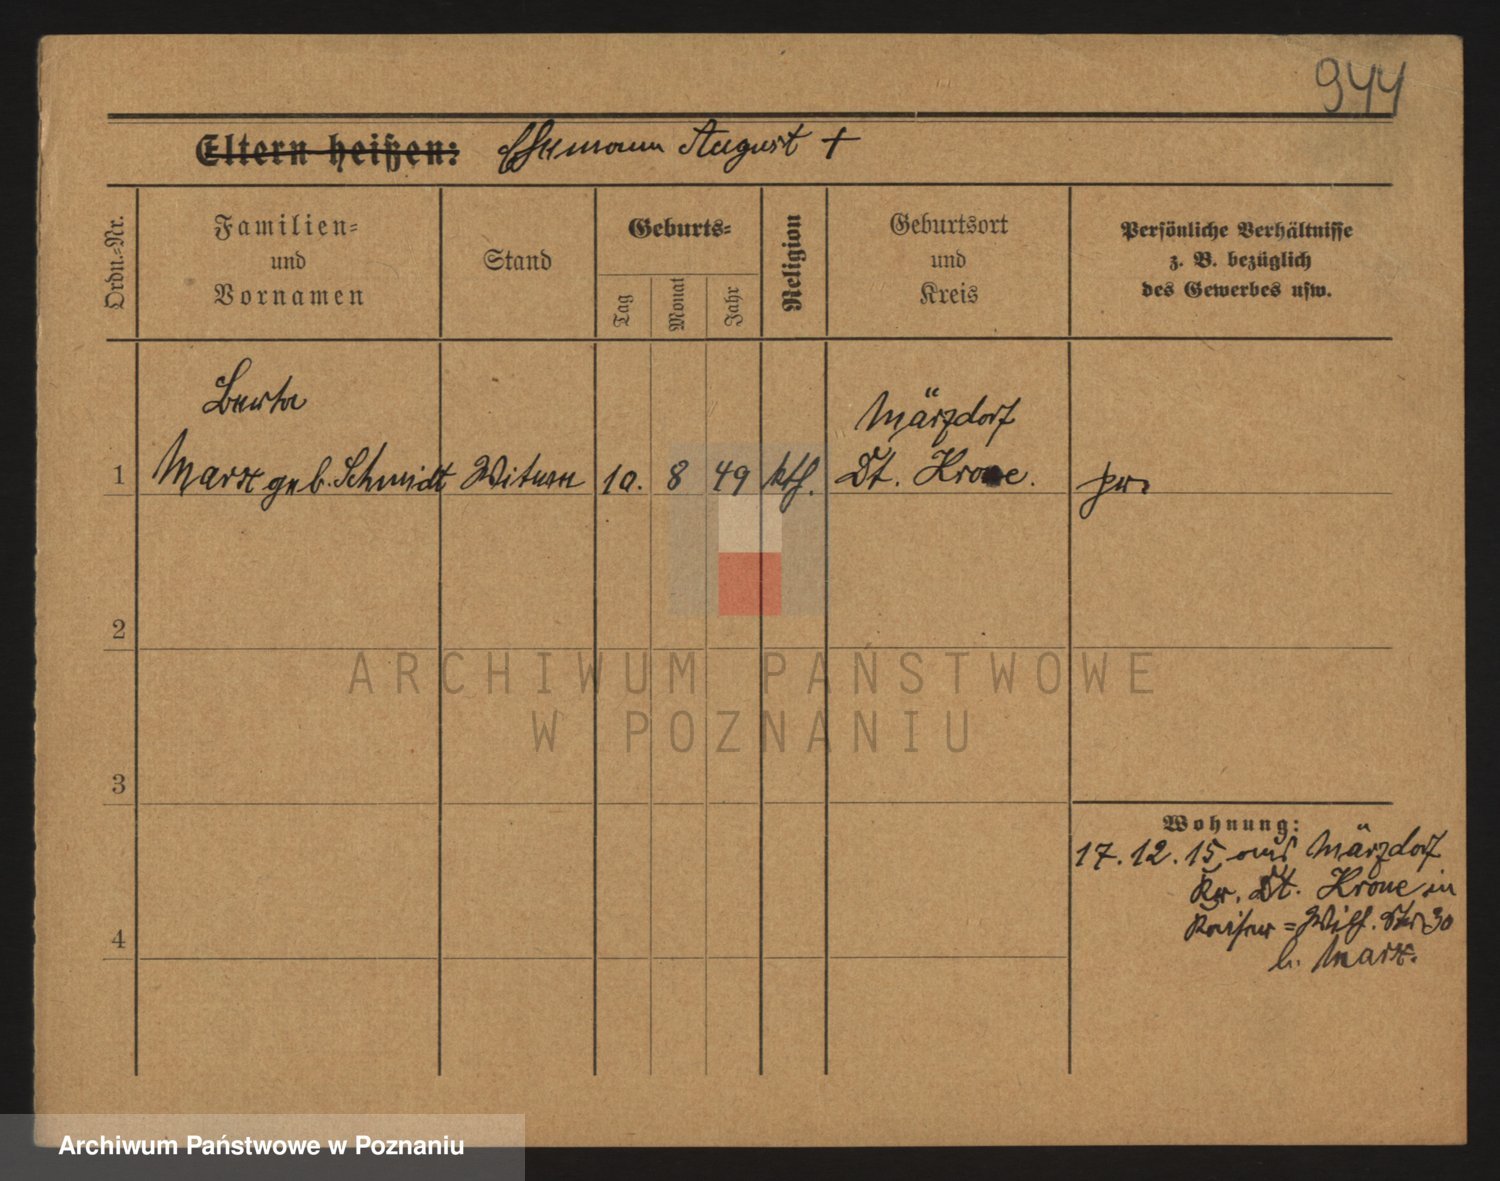 944
Eltern heißen: Ehemann August +
Ordn.-Nr.
Familien-
und
Vornamen
Stand
Geburts-
Tag
Monat
Jahr
Religion
Geburtsort
und
Kreis
Persönliche Verhältnisse
z. B. bezüglich
des Gewerbes usw.
Berta
Märzdorf
1 Marx geb. Schmidt Witwe 10. 8 49 kth. Dt. Krone. pr.
2
ARCHIWUM PAŃSTWOWE
W POZNANIU
3
Wohnung:
17.12.15 aus Märzdorf
Kr. Dt. Krone in
Kaiser=Wilh. Str 30
b. Marx.
4
Archiwum Państwowe w Poznaniu